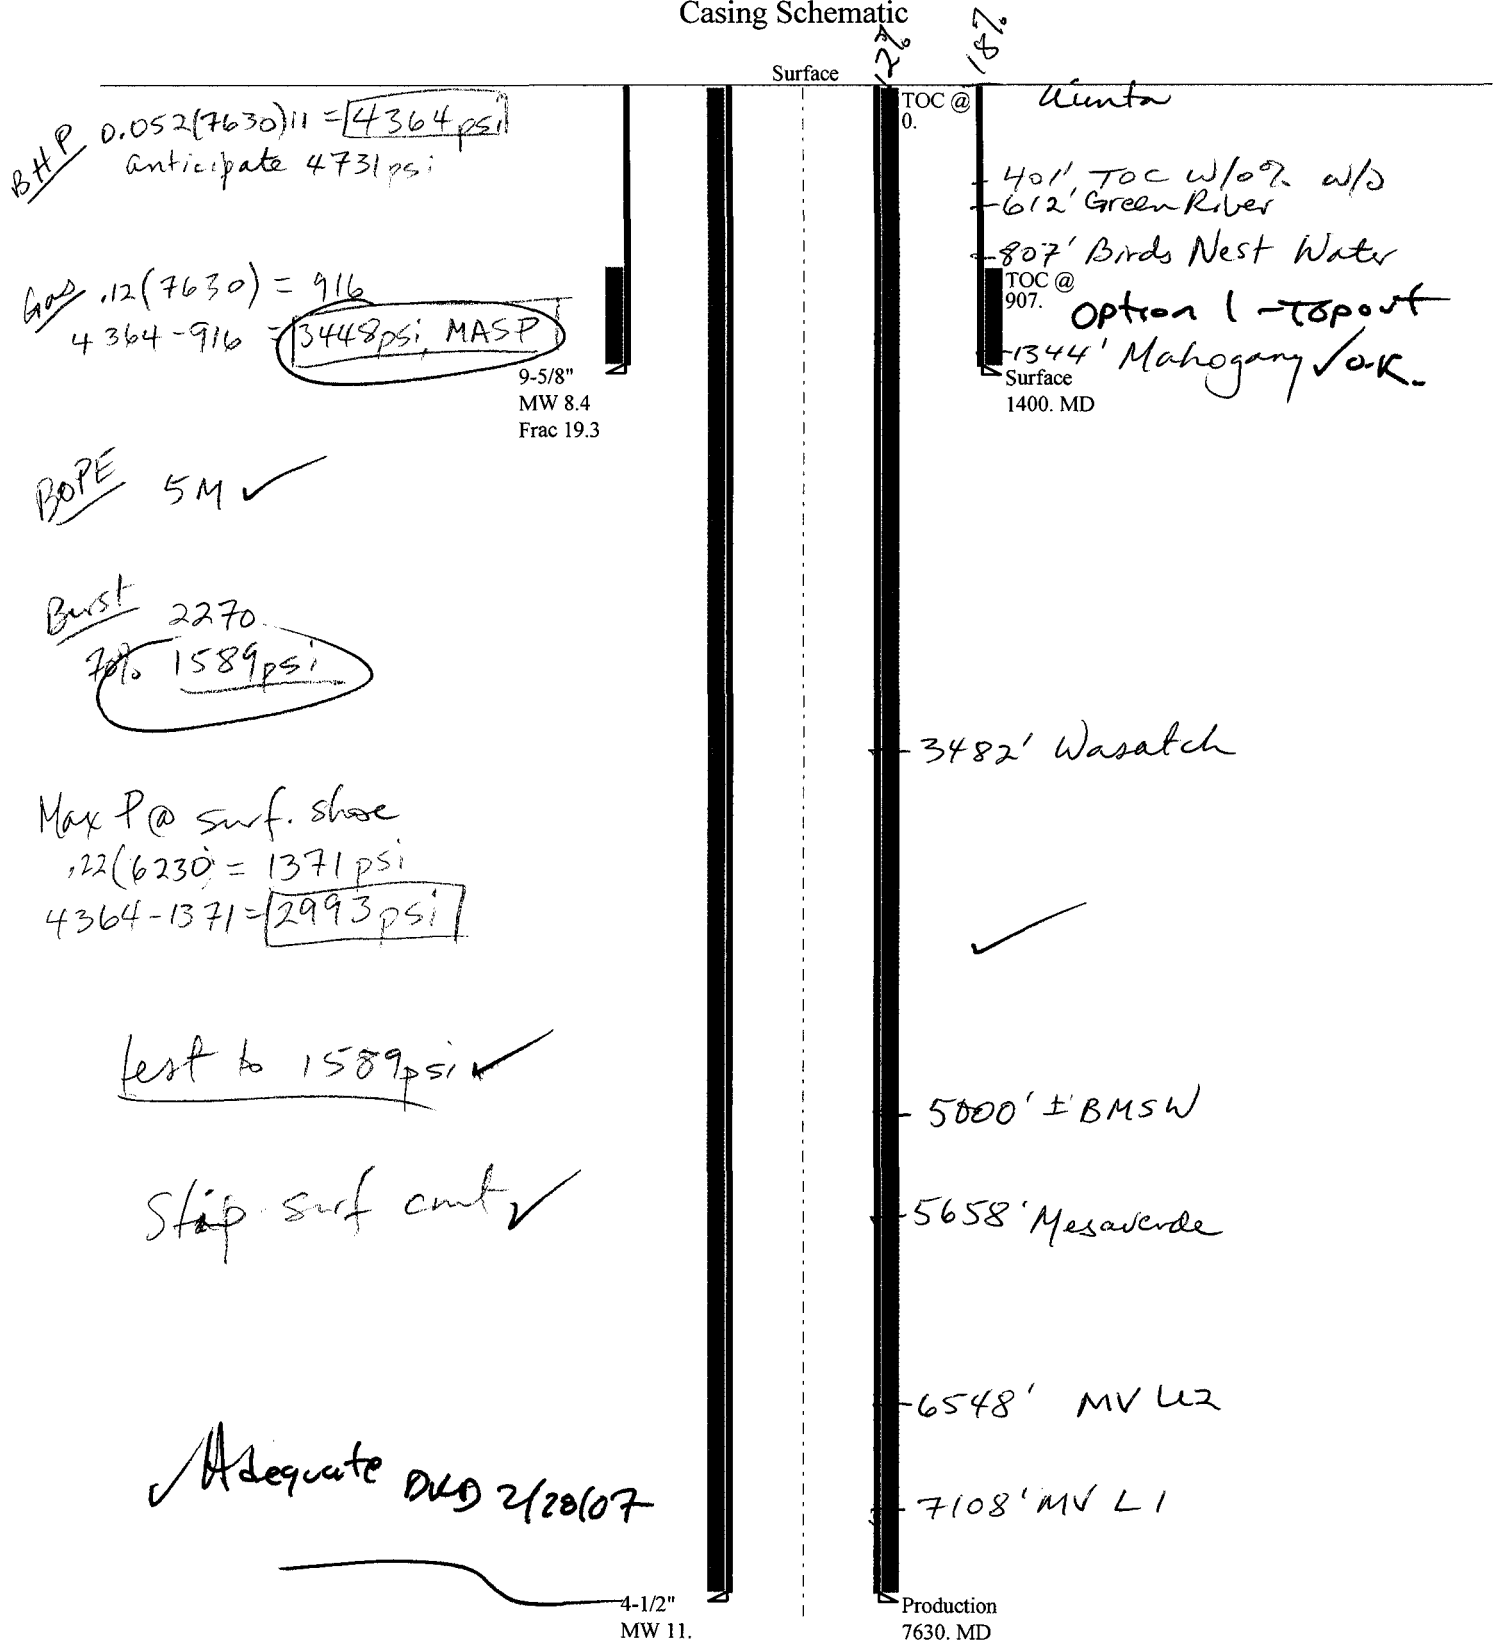 Casing Schematic
12%
18%
Surface
BHP 0.052(7630)11 = 4364psi
anticipate 4731psi
Gas .12(7630) = 916
4364-916 = 3448psi, MASP
9-5/8"
MW 8.4
Frac 19.3
BOPE 5M ✓
Burst 2270
70% 1589psi
Max P@ surf. shoe
.22(6230) = 1371psi
4364-1371=2993psi
test to 1589psi ✓
Stip surf cmt ✓
✓Adequate DKD 2/28/07
4-1/2"
MW 11.
TOC @
0.
Uinta
401' TOC w/0% w/o
612' Green River
807' Birds Nest Water
TOC @
907.
Option 1 - Topout
1344' Mahogany ✓ O.K.
Surface
1400. MD
3482' Wasatch
✓
5000' ± BMSW
5658' Mesaverde
6548' MV U2
7108' MV L1
Production
7630. MD